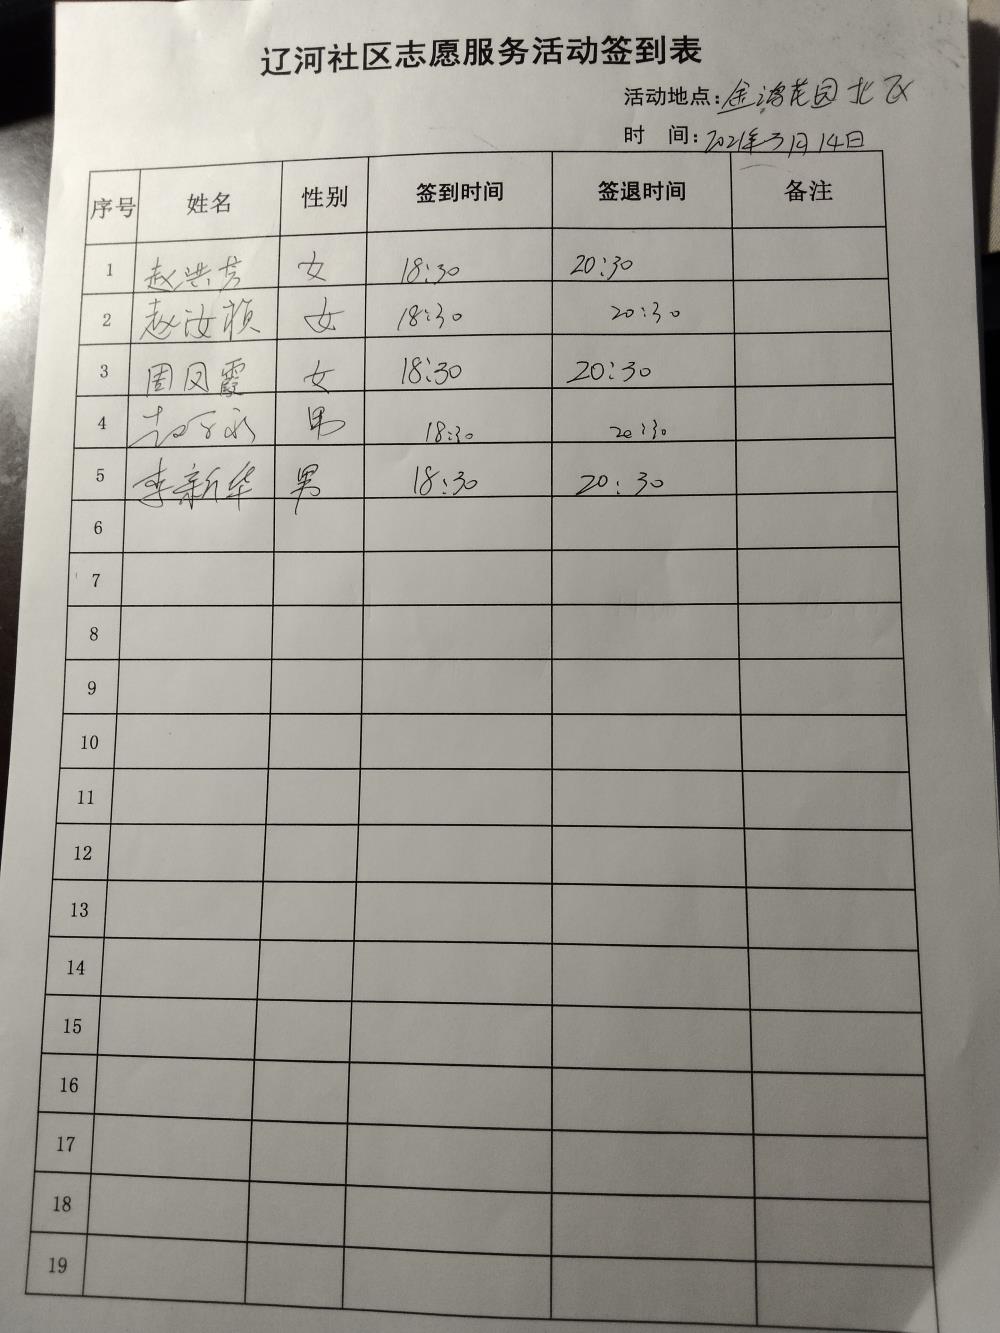 辽河社区志愿服务活动签到表
活动地点:金鸿花园北区
时 间:2021年3月14日
序号 姓名 性别 签到时间 签退时间 备注
1 赵洪芳 女 18:30 20:30
2 赵汝祯 女 18:30 20:30
3 周凤霞 女 18:30 20:30
4 男 18:30 20:30
5 李新华 男 18:30 20:30
6
7
8
9
10
11
12
13
14
15
16
17
18
19